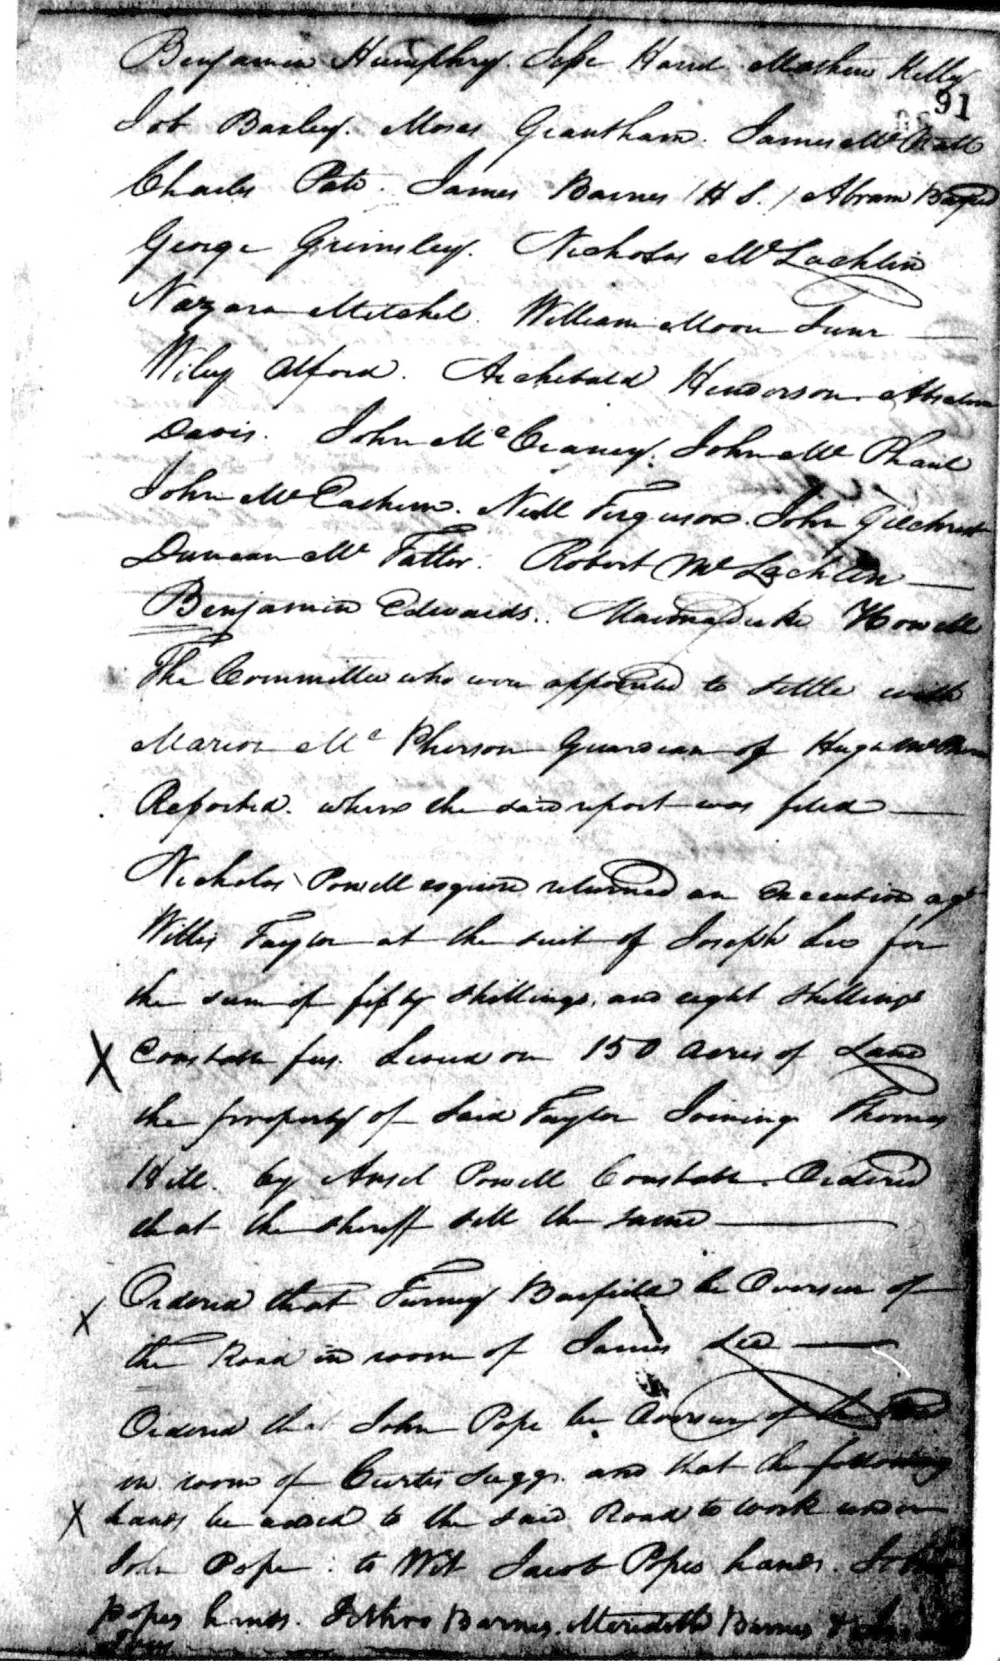 Benjamin Humphry. Jesse Hand Mathew Kelly
91
Job Baxley. Moses Grantham. James McNatt
Charles Pate. James Barnes (H S.) Abram
George Grimsley. Nicholas McLachlin
Nazara Mitchel. William Moore Junr
Wiley Alford. Archibald Henderson. Absalum
Davis. John McCraney. John McPhaul
John McEachern. Neill Ferguson. John Gilchrist
Duncan McFatter. Robert McLachlin
Benjamin Edwards. Marmaduke Howell
The Committee who were appointed to settle with
Marion McPherson Guardian of Hugh
Reported. where the said report was filed
Nicholas Powell esquire returned an Execution agt
Willis Taylor at the suit of Joseph Lee for
the sum of fifty shillings. and eight shillings
X Constable fees. Levied on 150 acres of Land
the property of Said Taylor Joining Thomas
Hill. by Ansel Powell Constable. Ordered
that the sheriff sell the same
X Ordered that Furney Barfield be Overseer of
the Road in room of James Lee
Ordered that John Pope be Overseer of the Road
in room of Curtis Suggs. and that the following
X hands be added to the said Road to work under
John Pope. to Wit Jacob Popes hands. John
popes hands. Jethro Barnes. Meredith Barnes &